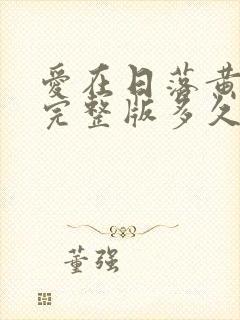 爱在日落黄
完整版多久
董强